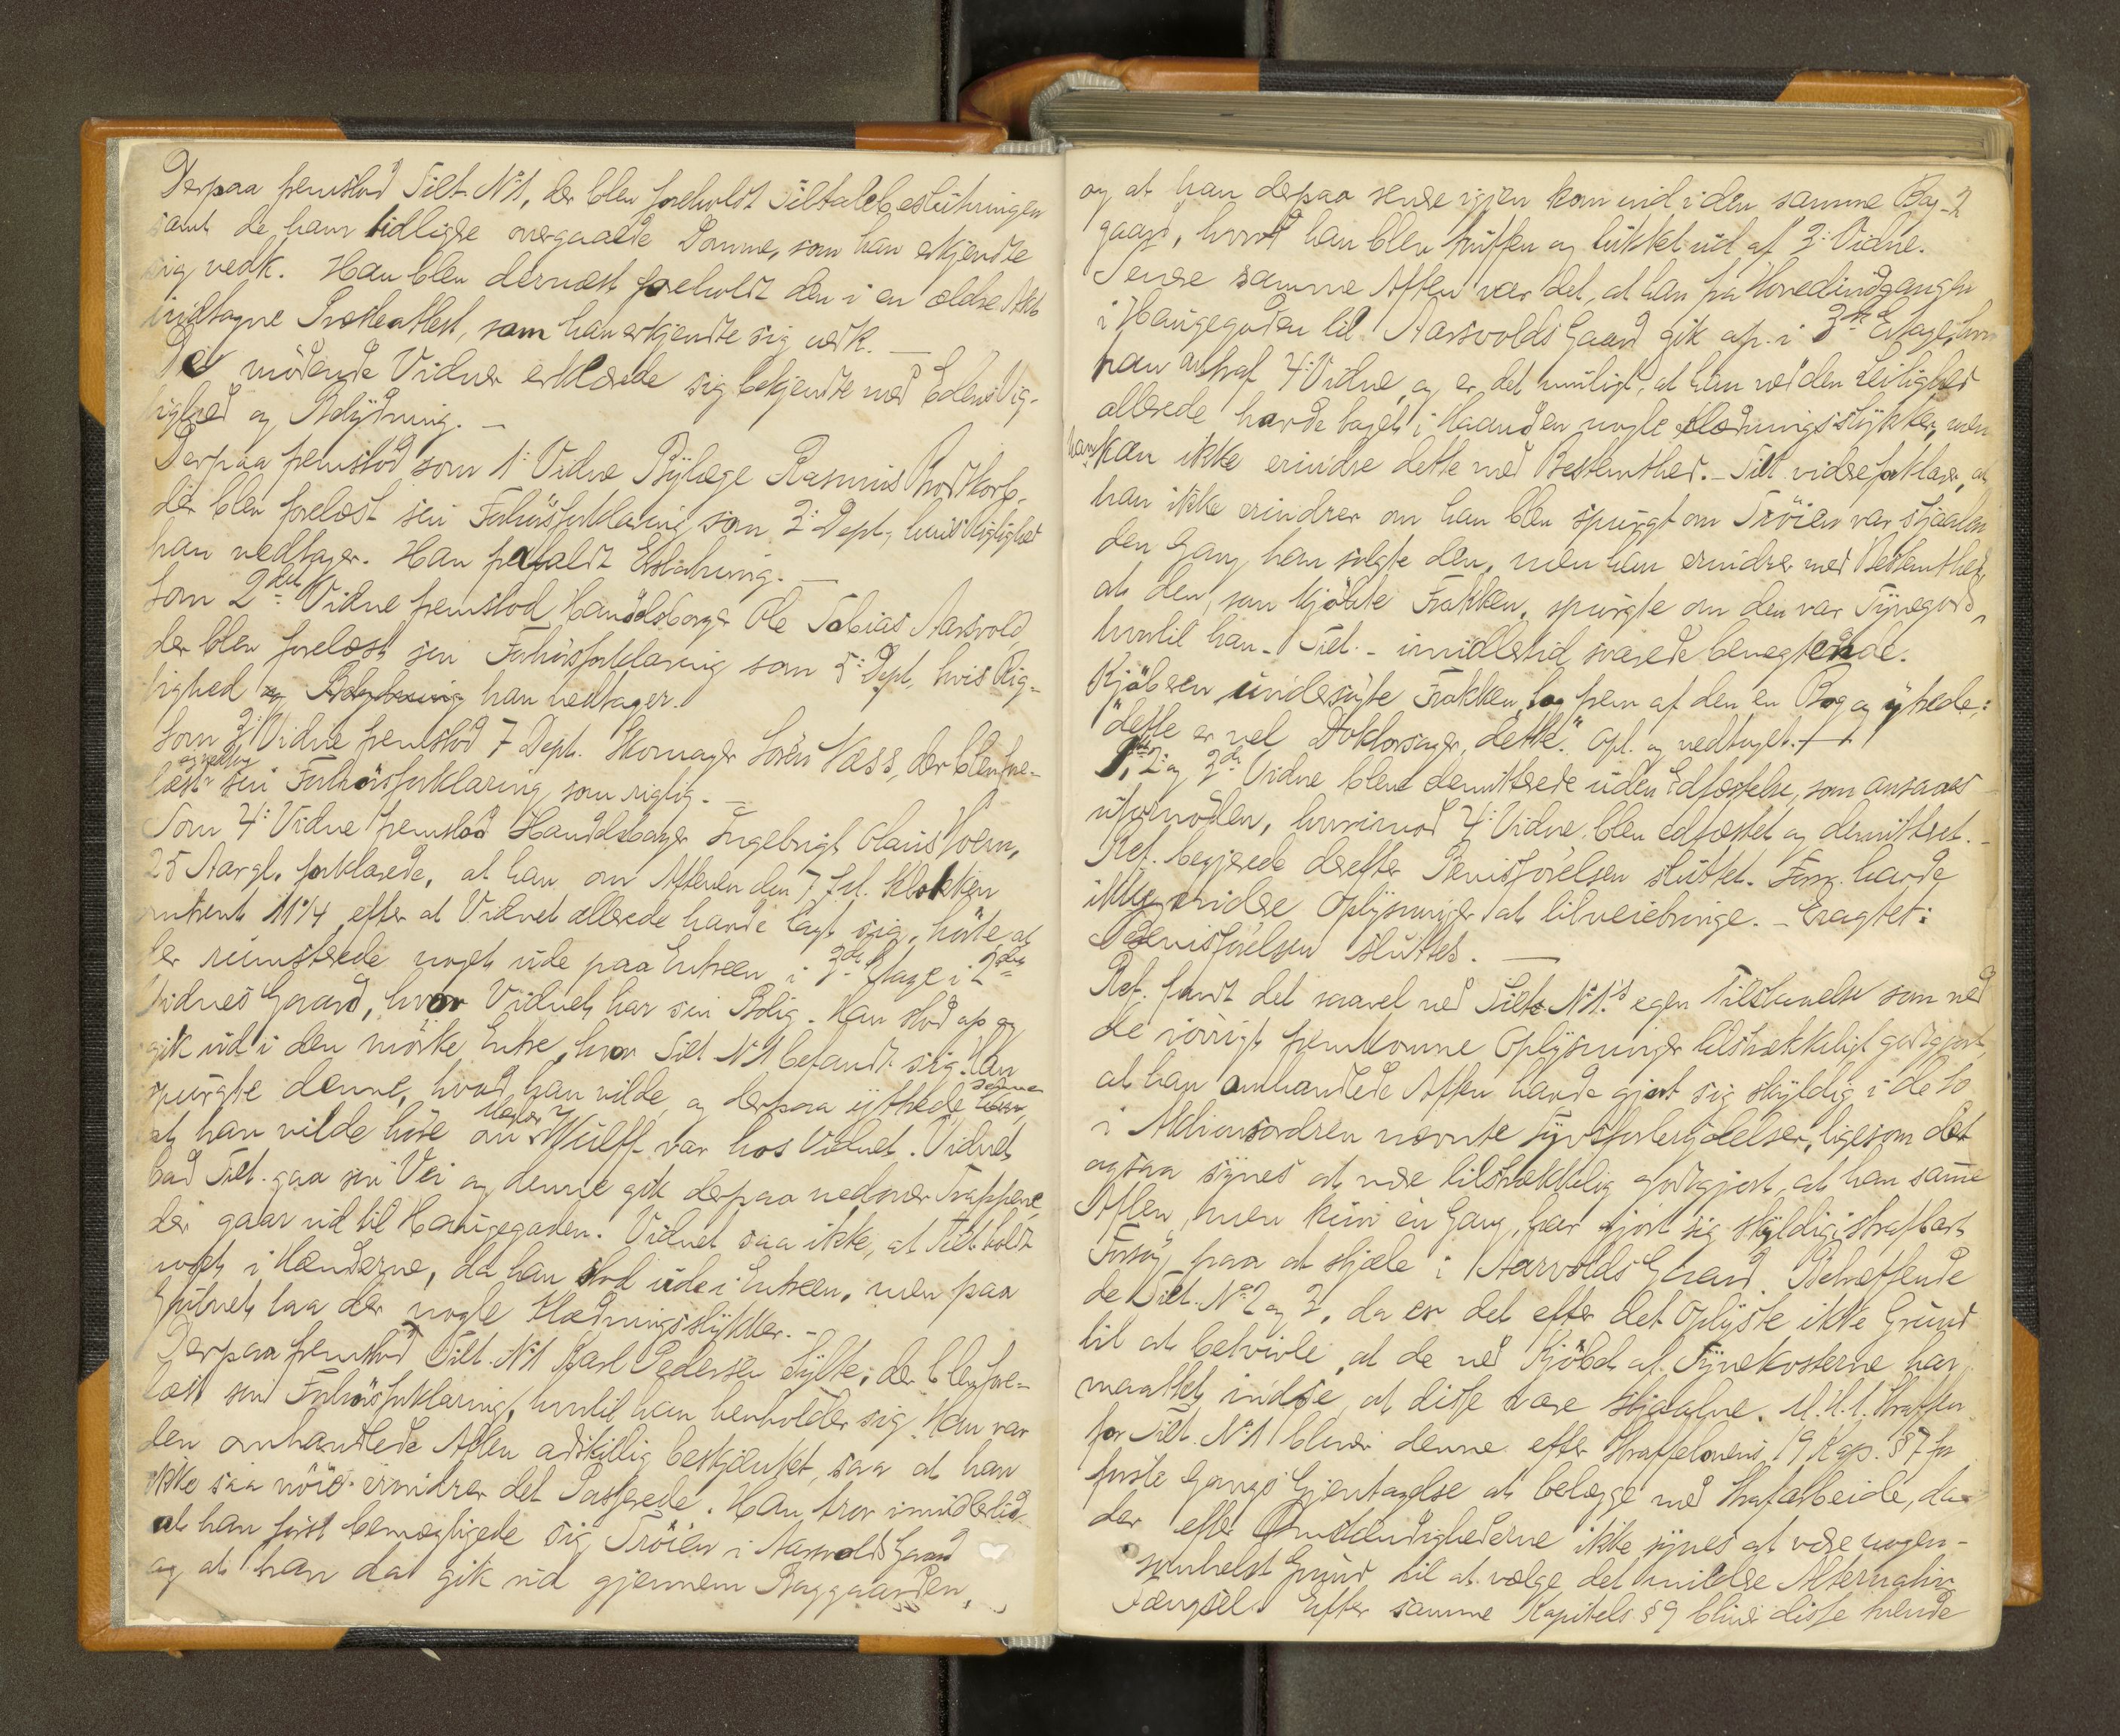 Derpaa fremstod Tilt. No 1, der blev foreholdt Tiltalebeslutningen
samt de ham tidligere overgaaede Domme, som han erkjendte
sig vedk. Han blev dernæst foreholdt den i en ældre Akt
indtagne Præsteattest, som han erkjendte sig vedk. —
De mødende Vidner erklærede sig bekjendte med Edens Vig-
tighed og Betydning. —
Derpaa fremstod som 1: Vidne Bylæge Rasmus Brodtkorb,
der blev forelæst sin Forhørsforklaring som 2: Dept, hvis Rigtighed
han vedtager. Han frafaldt Erstatning. —
Som 2det Vidne fremstod Handelsborger Ole Tobias Aarsvold,
der blev forelæst sin Forhørsforklaring som 5: Dept, hvis Rig-
tighed og Betydning han vedtager.
Som 3: Vidne fremstod 7 Dept. Skomager Søren Næss, der blev fore-
og vedtog
læst sin Forhørsforklaring som rigtig. —
Som 4: Vidne fremstod Handelsborger Ingebrigt Olaus Hoem,
25 Aar gl. forklarede, at han om Aftenen den 7 f.M. Klokken
omtrent 11 1/4, efter at Vidnet allerede havde lagt sig, hørte at
der rumsterede noget ude paa Entreen i 3die Etage i 2det
Vidnes Gaard, hvor Vidnet har sin Bolig. Han stod op og
gik ud i den mørke Entre, hvor Tilt No 1 befandt sig. Han
spurgte denne, hvad han vilde, og derpaa ytrede denne
at han vilde høre om Wulff var hos Vidnet. Vidnet
bad Tilt. gaa sin Vei og denne gik derpaa nedover Trappene,
der gaar ud til Haugegaden. Vidnet saa ikke, at Tilt. holdt
noget i Hænderne, da han stod ude i Entreen, men paa
Gulvet laa der nogle Klædningsstykker. —
Derpaa fremstod Tilt. No 1 Karl Pedersen Sylte, der blev fore-
læst sin Forhørsforklaring, hvortil han henholder sig. Han var
den omhandlede Aften adskillig beskjænket, saa at han
ikke saa nøie erindrer det Passerede. Han tror imidlertid
at han først bemægtigede sig Trøien i Aarsvolds Gaard
og at han da gik ud gjennem Baggaarden,
og at han derpaa senere igjen kom ind i den samme Bag-
gaard, hvor han blev truffen og lukket ud af 2: Vidne.
Senere samme Aften var det, at han fra Hovedindgangen
i Haugegaden til Aarsvolds Gaard gik op i 3die Etage, hvor
han antraf 4: Vidne, og er det muligt, at han ved den Leilighed
allerede havde taget i Haanden nogle Klædningsstykker, men
han kan ikke erindre dette med Bestemthed. — Tilt. videre forklarer, at
han ikke erindrer om han blev spurgt om Trøien var stjaalen
den Gang han solgte den, men han erindrer med Bestemthed,
at den, som kjøbte Frakken, spurgte om den var Tyvegods,
hvortil han - Tilt. - imidlertid svarede benegtende.
Kjøberen undersøgte Frakken, tog frem af den en Bog og ytrede:
"dette er vel Doktorsager, dette". Opl. og vedtaget. —
1ste, 2: og 3die Vidne bleve demitterede uden Edfæstelse, som ansaaes
ufornøden, hvorimod 4: Vidne blev edfæstet og demitteret. —
Ref. begjerede derefter Bevisførelsen sluttet. Forsv. havde
ikke videre Oplysninger at tilveiebringe. — Eragtet:
Bevisførelsen sluttes. —
Ref. fandt det saavel ved Tilt. No 1's egen Tilstaaelse som ved
de iøvrigt fremkomne Oplysninger tilstrækkeligt godtgjort,
at han omhandlede Aften havde gjort sig skyldig i de to
i Aktionsordren nævnte Tyvsforbrydelser, ligesom det
ogsaa synes at være tilstrækkelig godtgjort, at han samme
Aften, men kun én Gang, har gjort sig skyldig i strafbart
Forsøg paa at stjæle i Aarsvolds Gaard. Betræffende
de Tilt. No 2 og 3, da er det efter det Oplyste ikke Grund
til at betvivle, at de ved Kjøbet af Tyvekosterne har
maattet indse, at disse vare stjaalne. Straffen
for Tilt. No 1 bliver denne efter Straffelovens 19 Kap. § 7 for
første Gangs Gjentagelse at belægge med Strafarbeide, da
der efter Omstændighederne ikke synes at være nogen-
somhelst Grund til at vælge det mildere Alternativ
Fængsel. Efter samme Kapitels § 9 bliver disse tvende